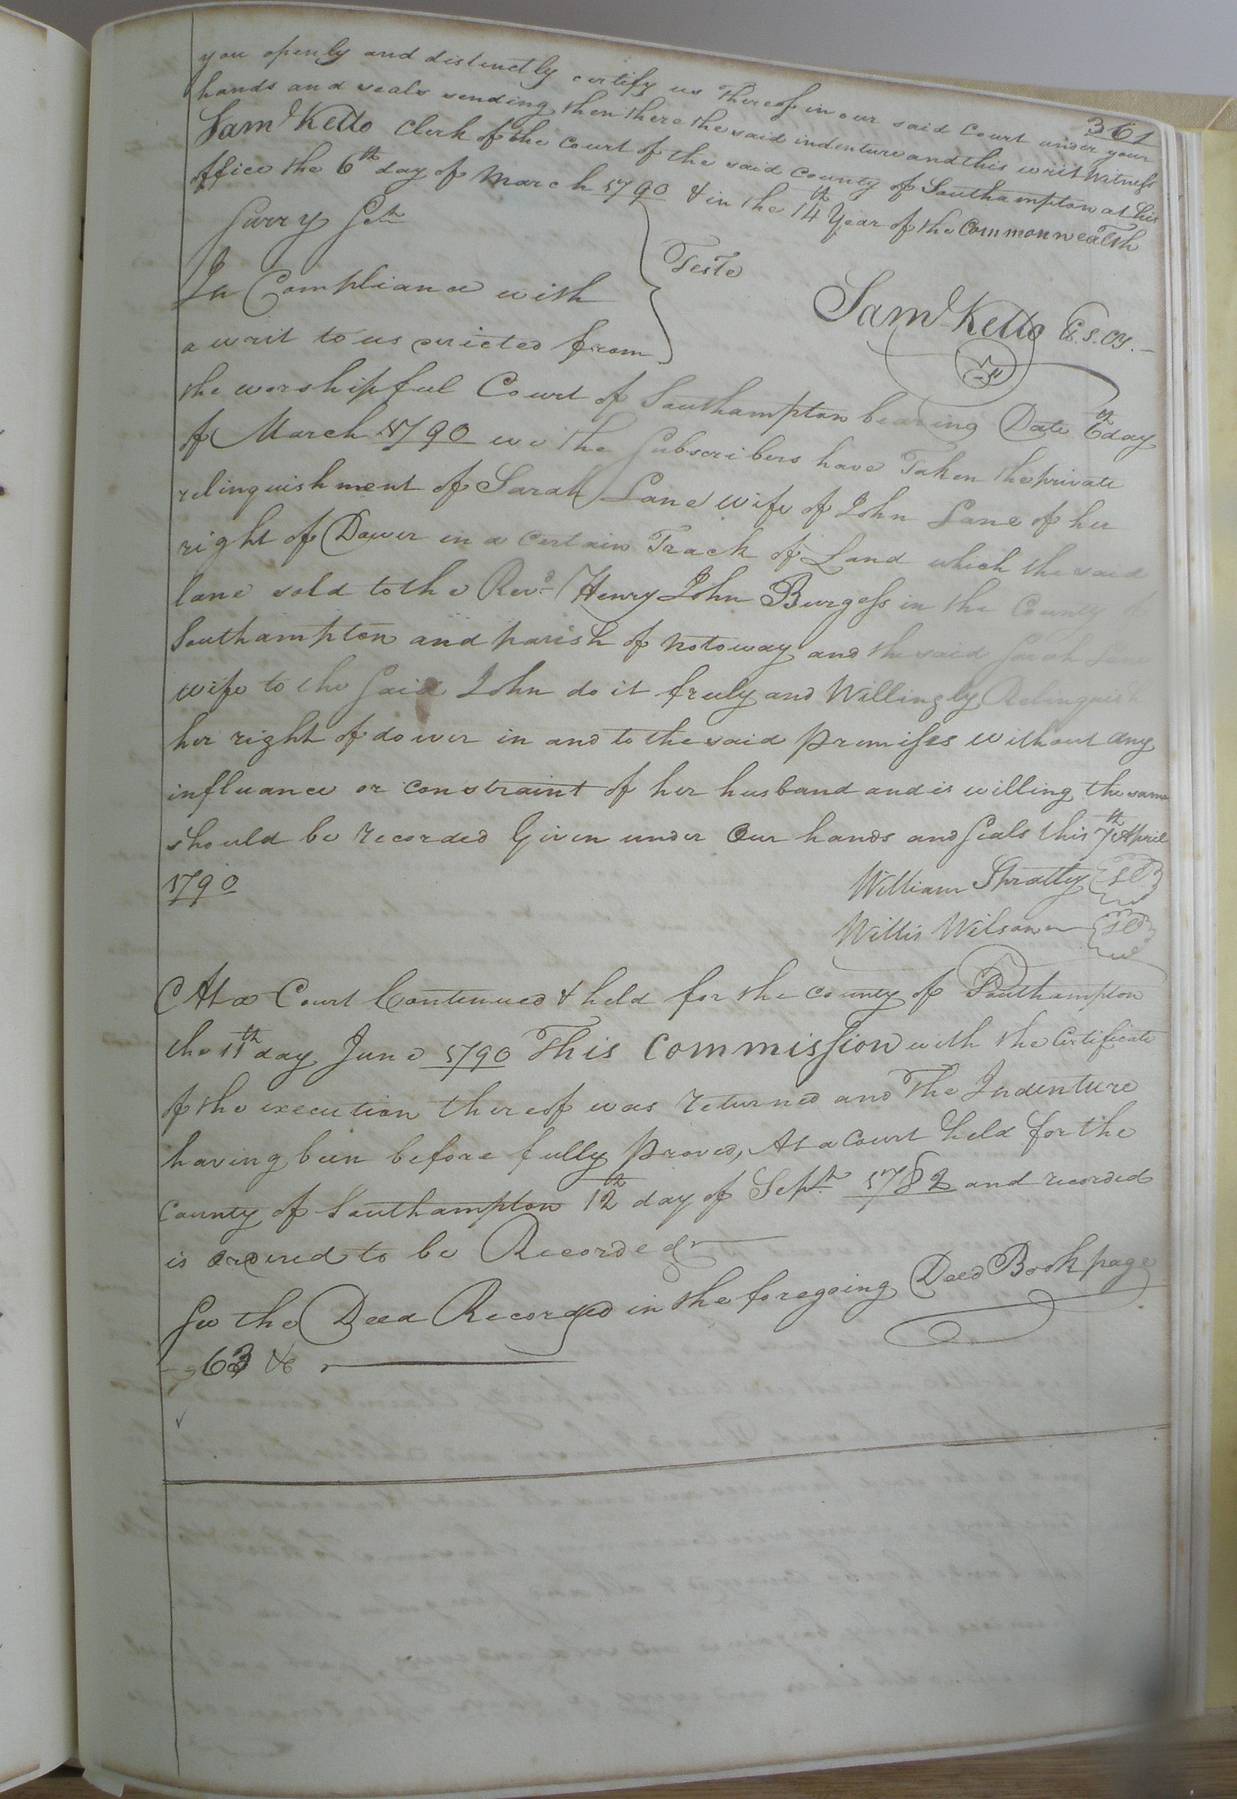 361
you openly and distinctly certify us thereof in our said Court under your
hands and seals sending then there the said indenture and this writ Witness
Saml Kello Clerk of the Court of the said County of Southampton at his
office the 6th day of March 1790 & in the 14th Year of the Commonwealth
Surry Sct
Teste
In Compliance with
Saml Kello C.S.Cy.
a writ to us directed from
the worshipful Court of Southampton bearing Date 6th day
of March 1790 we the Subscribers have Taken the private
relinquishment of Sarah Lane wife of John Lane of her
right of Dower in a Certain Track of Land which the said
lane sold to the Revd Henry John Burgess in the County of
Southampton and parish of Notoway and the said Sarah Lane
wife to the Said John do it freely and Willingly Relinquish
her right of dower in and to the said premises without any
influance or constraint of her husband and is willing the same
should be recorded Given under Our hands and Seals this 7th April
1790
William
Willis Wilson
At a Court Continued & held for the County of Southampton
the 11th day June 1790 This Commission with the Certificate
of the execution thereof was returned and The Indenture
having been before fully proved, At a Court held for the
County of Southampton 12th day of Sept. 1782 and recorded
is ordered to be Recorded
See the Deed Recorded in the foregoing Deed Book page
63 &c